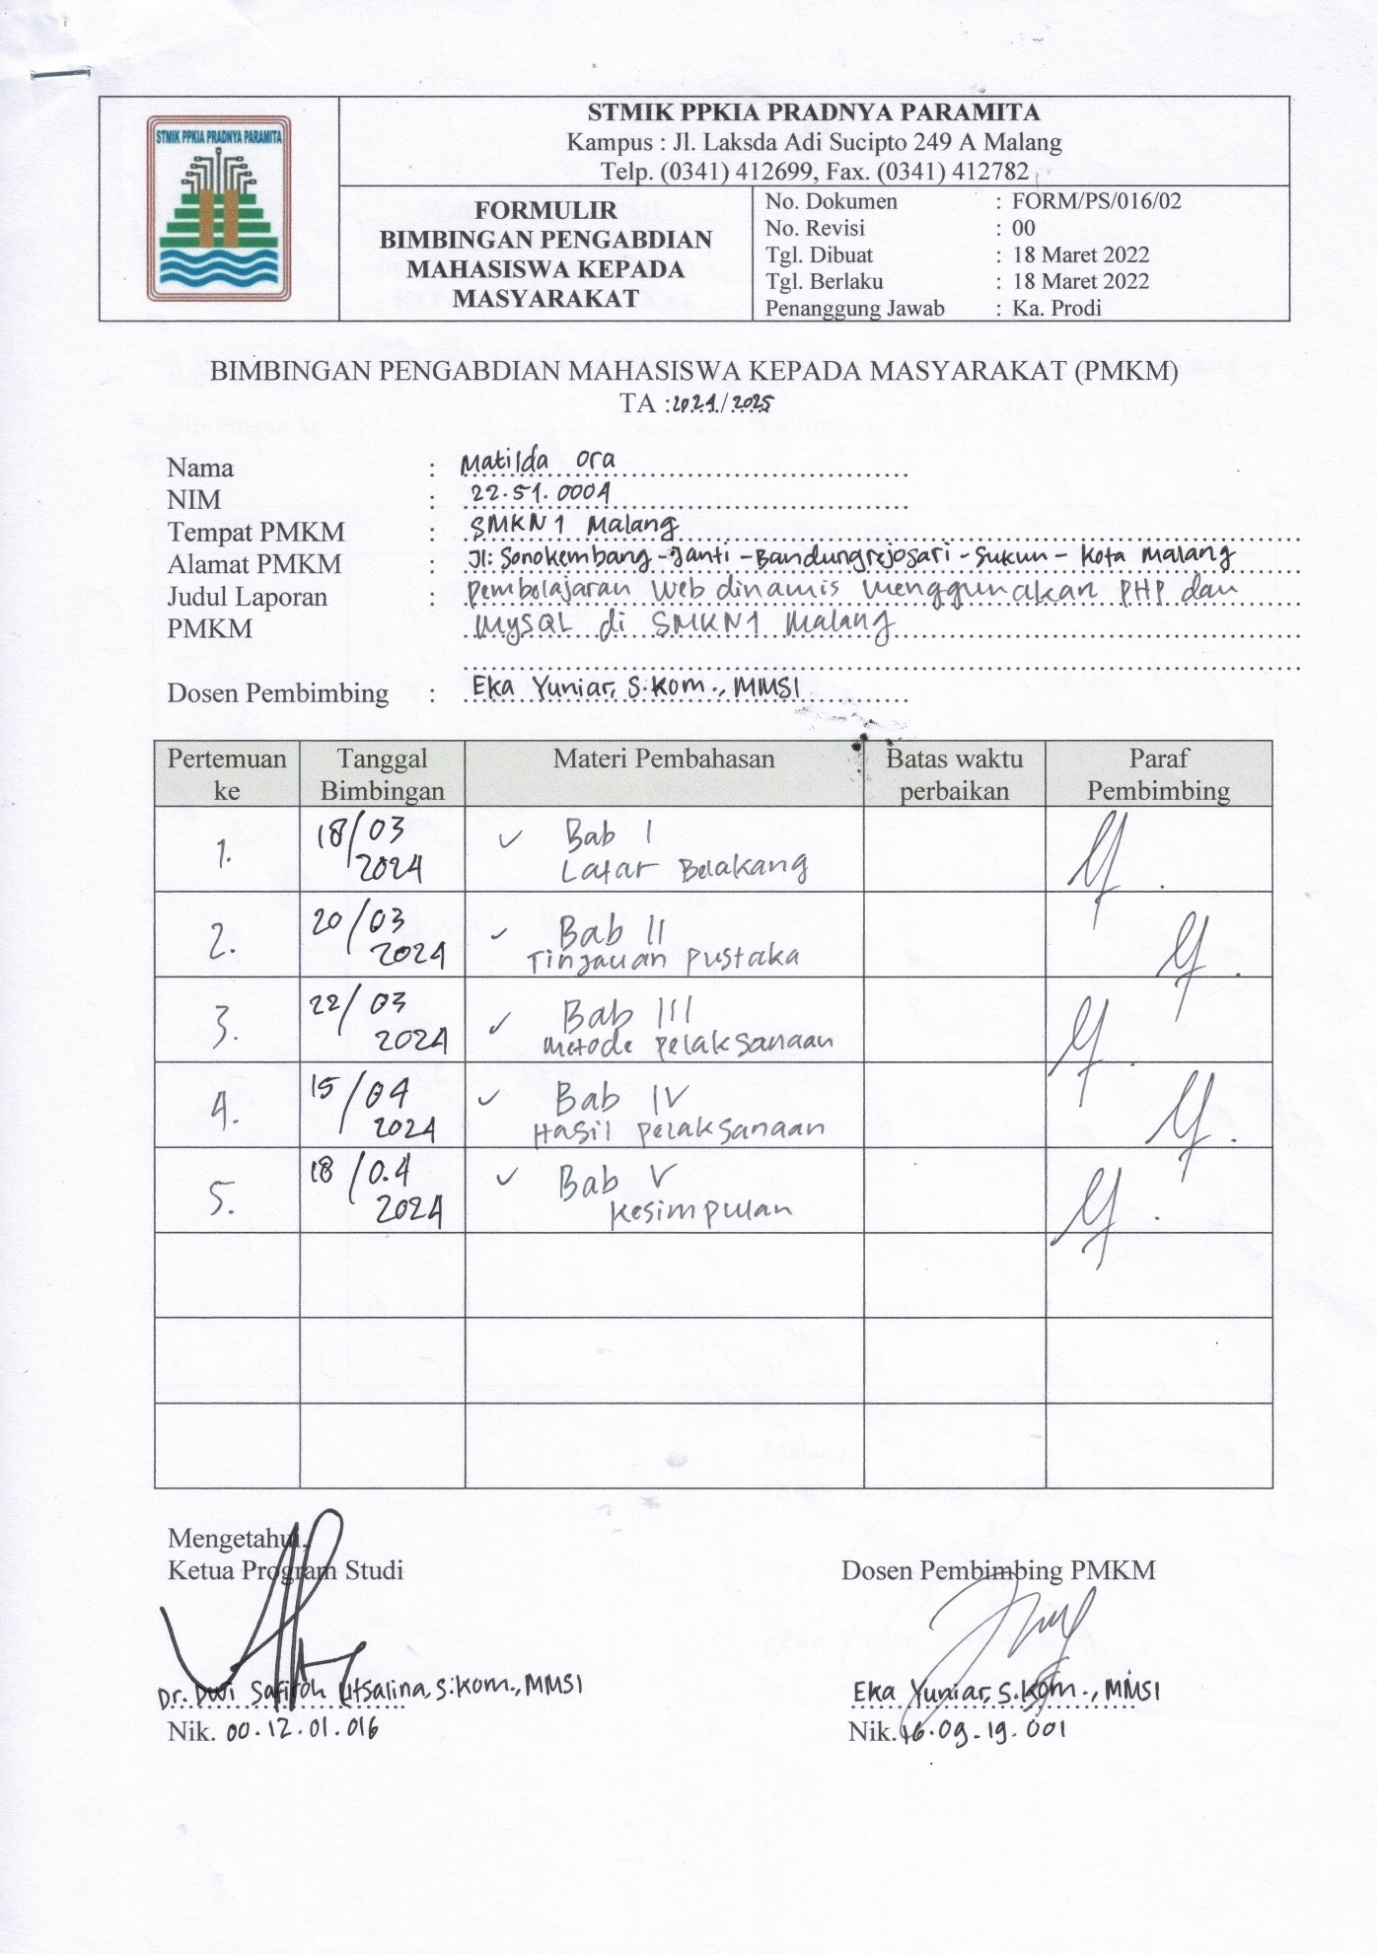 STMIK PPKIA PRADNYA PARAMITA
STMIK PPKIA PRADNYA PARAMITA
Kampus : Jl. Laksda Adi Sucipto 249 A Malang
Telp. (0341) 412699, Fax. (0341) 412782
FORMULIR
BIMBINGAN PENGABDIAN
MAHASISWA KEPADA
MASYARAKAT
No. Dokumen : FORM/PS/016/02
No. Revisi : 00
Tgl. Dibuat : 18 Maret 2022
Tgl. Berlaku : 18 Maret 2022
Penanggung Jawab : Ka. Prodi
BIMBINGAN PENGABDIAN MAHASISWA KEPADA MASYARAKAT (PMKM)
TA : 2024/2025
Nama : Matilda Ora
NIM : 22.51.0004
Tempat PMKM : SMKN 1 Malang
Alamat PMKM : Jl: Sonokembang - Janti - Bandungrejosari - Sukun - Kota Malang
Judul Laporan : Pembelajaran Web dinamis menggunakan PHP dan
PMKM MySQL di SMKN 1 Malang
Dosen Pembimbing : Eka Yuniar, S.Kom., MMSI
Pertemuan ke Tanggal Bimbingan Materi Pembahasan Batas waktu perbaikan Paraf Pembimbing
1. 18/03 2024 ✓ Bab I
Latar Belakang
2. 20/03 2024 ✓ Bab II
Tinjauan pustaka
3. 22/03 2024 ✓ Bab III
Metode pelaksanaan
4. 15/04 2024 ✓ Bab IV
Hasil pelaksanaan
5. 18/04 2024 ✓ Bab V
Kesimpulan
Mengetahui,
Ketua Program Studi
Dosen Pembimbing PMKM
Dr. Dwi Safiroh Utsalina, S.Kom., MMSI
Eka Yuniar, S.Kom., MMSI
Nik. 00.12.01.016
Nik. 16.09.19.001